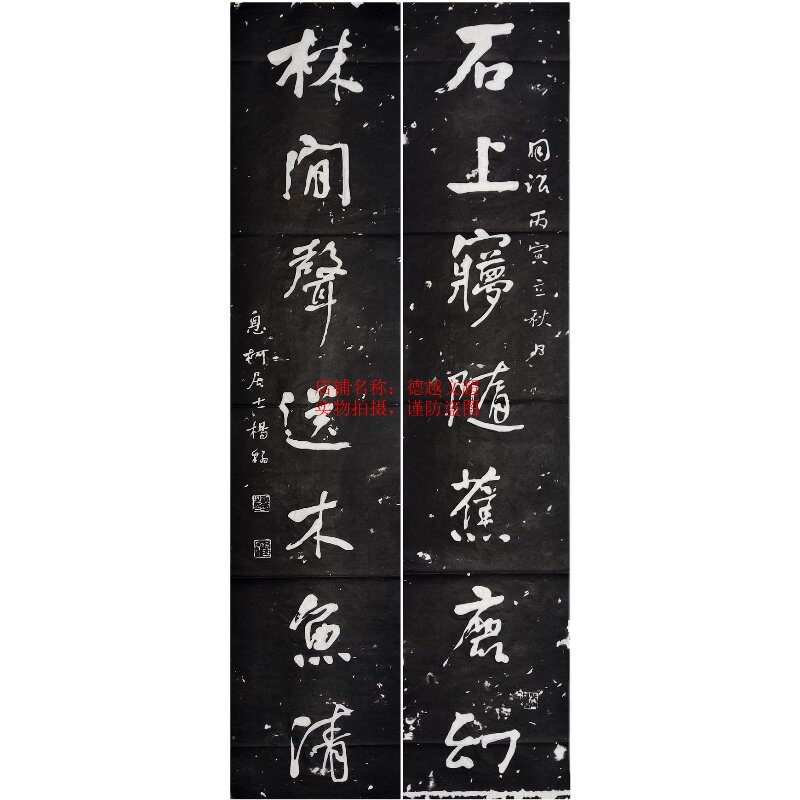 石上夢隨蕉鹿幻
同治丙寅立秋日
林間聲送木魚清
息柯居士楊翰
店铺名称：德越文
实物拍摄，谨防盗图